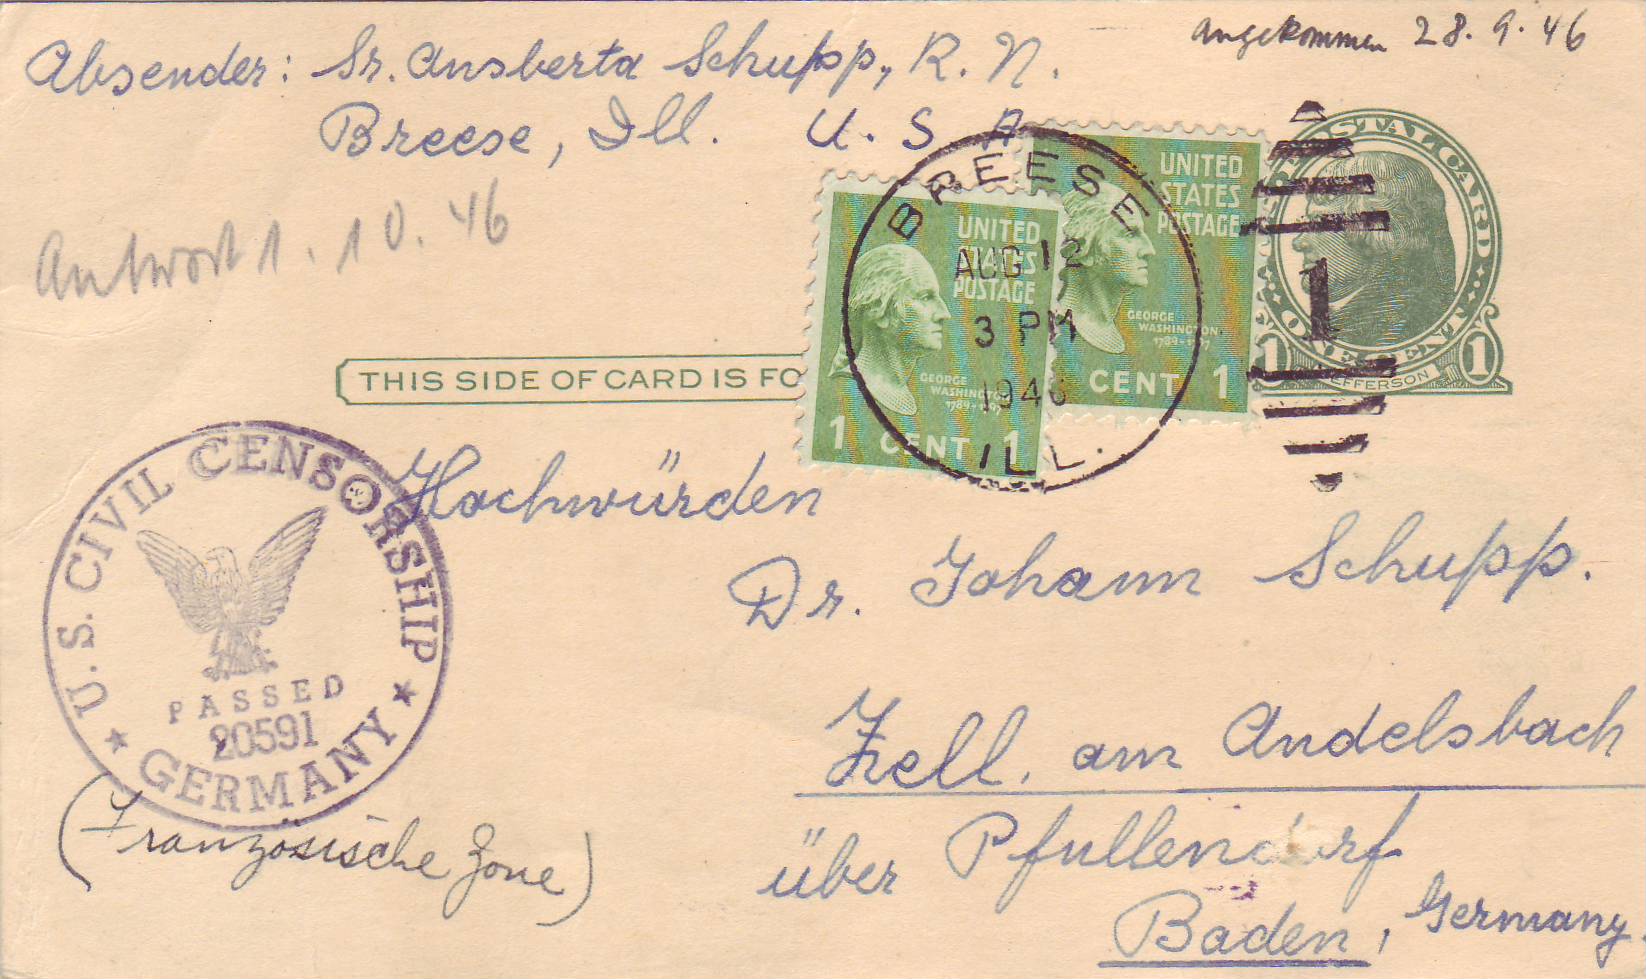 angekommen 28.9.46
Absender: Sr. Ansberta Schupp, R. N.
Breese, Ill. U. S. A
Antwort 1. 10. 46
POSTAL CARD
ONE CENT
1 JEFFERSON 1
UNITED
STATES
POSTAGE
GEORGE
WASHINGTON
1789-1797
CENT 1
UNITED
STATES
POSTAGE
GEORGE
WASHINGTON
1789-1797
1 CENT 1
BREESE
AUG 12
3 PM
1946
ILL.
1
THIS SIDE OF CARD IS FO
U.S. CIVIL CENSORSHIP
PASSED
20591
GERMANY
Hochwürden
Dr. Johann Schupp.
Zell. am Andelsbach
über Pfullendorf
Baden, Germany.
(Französische Zone)